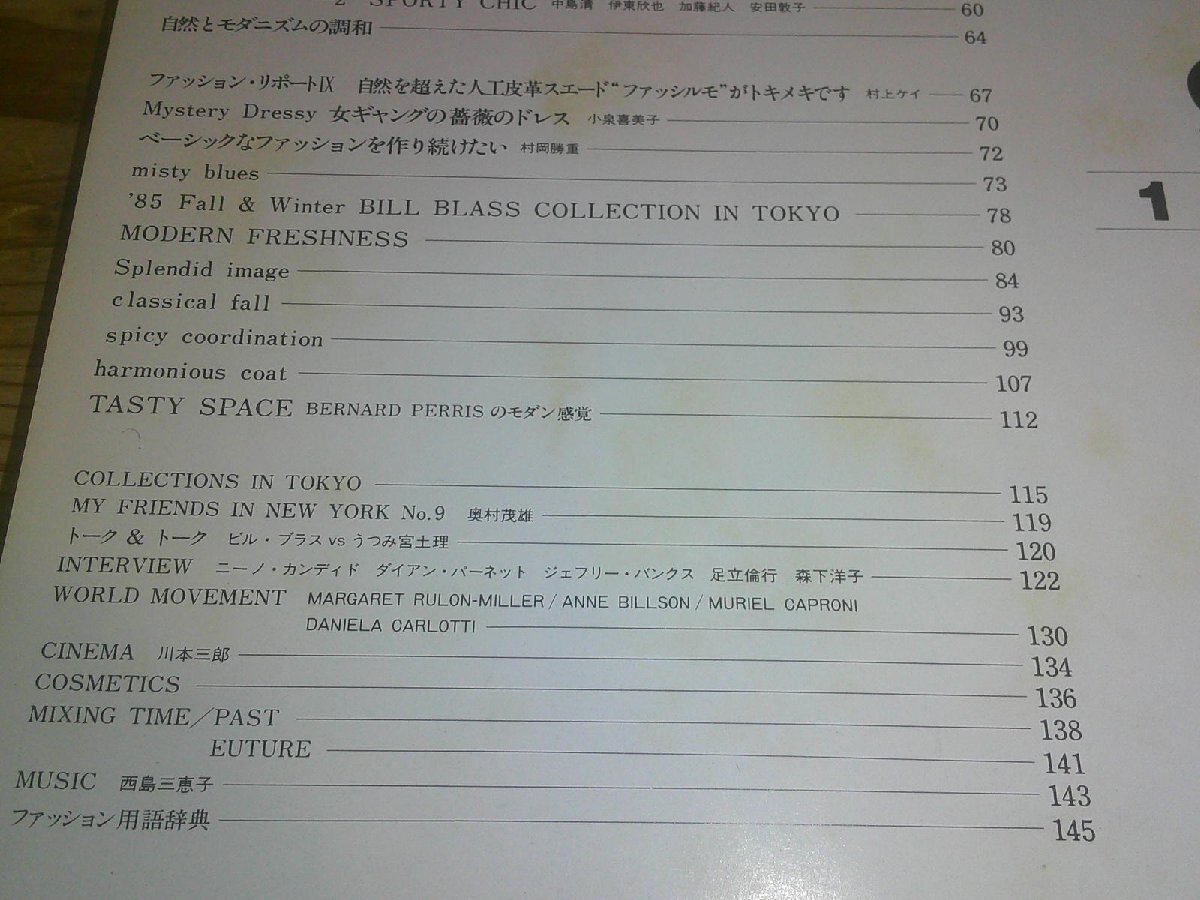 2 SPORTY CHIC 中島清 伊東欣也 加藤紀人 安田敦子 60
自然とモダニズムの調和 64
ファッション・リポートIX 自然を超えた人工皮革スエード“ファッシルモ”がトキメキです 村上ケイ 67
Mystery Dressy 女ギャングの薔薇のドレス 小泉喜美子 70
ベーシックなファッションを作り続けたい 村岡勝重 72
misty blues 73
'85 Fall & Winter BILL BLASS COLLECTION IN TOKYO 78
MODERN FRESHNESS 80
Splendid image 84
classical fall 93
spicy coordination 99
harmonious coat 107
TASTY SPACE BERNARD PERRISのモダン感覚 112
COLLECTIONS IN TOKYO 115
MY FRIENDS IN NEW YORK No.9 奥村茂雄 119
トーク & トーク ビル・ブラス vs うつみ宮土理 120
INTERVIEW ニーノ・カンディド ダイアン・パーネット ジェフリー・バンクス 足立倫行 森下洋子 122
WORLD MOVEMENT MARGARET RULON-MILLER/ANNE BILLSON/MURIEL CAPRONI
DANIELA CARLOTTI 130
CINEMA 川本三郎 134
COSMETICS 136
MIXING TIME/PAST 138
EUTURE 141
MUSIC 西島三恵子 143
ファッション用語辞典 145
1